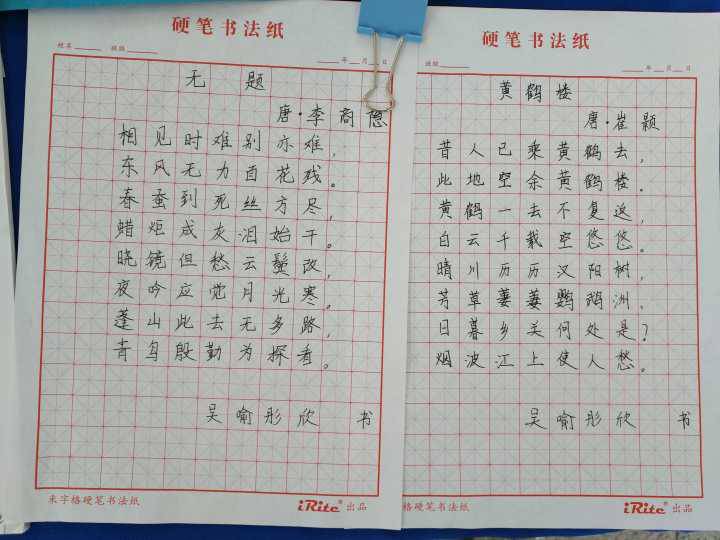 硬笔书法纸
姓名 班级
年 月 日
无 题
唐·李商隐
相见时难别亦难，
东风无力百花残。
春蚕到死丝方尽，
蜡炬成灰泪始干。
晓镜但愁云鬓改，
夜吟应觉月光寒。
蓬山此去无多路，
青鸟殷勤为探看。
吴喻彤欣 书
米字格硬笔书法纸
iRite® 出品
硬笔书法纸
班级
年 月 日
黄鹤楼
唐·崔颢
昔人已乘黄鹤去，
此地空余黄鹤楼。
黄鹤一去不复返，
白云千载空悠悠。
晴川历历汉阳树，
芳草萋萋鹦鹉洲。
日暮乡关何处是？
烟波江上使人愁。
吴喻彤欣 书
格硬笔书法纸
iRite® 出品